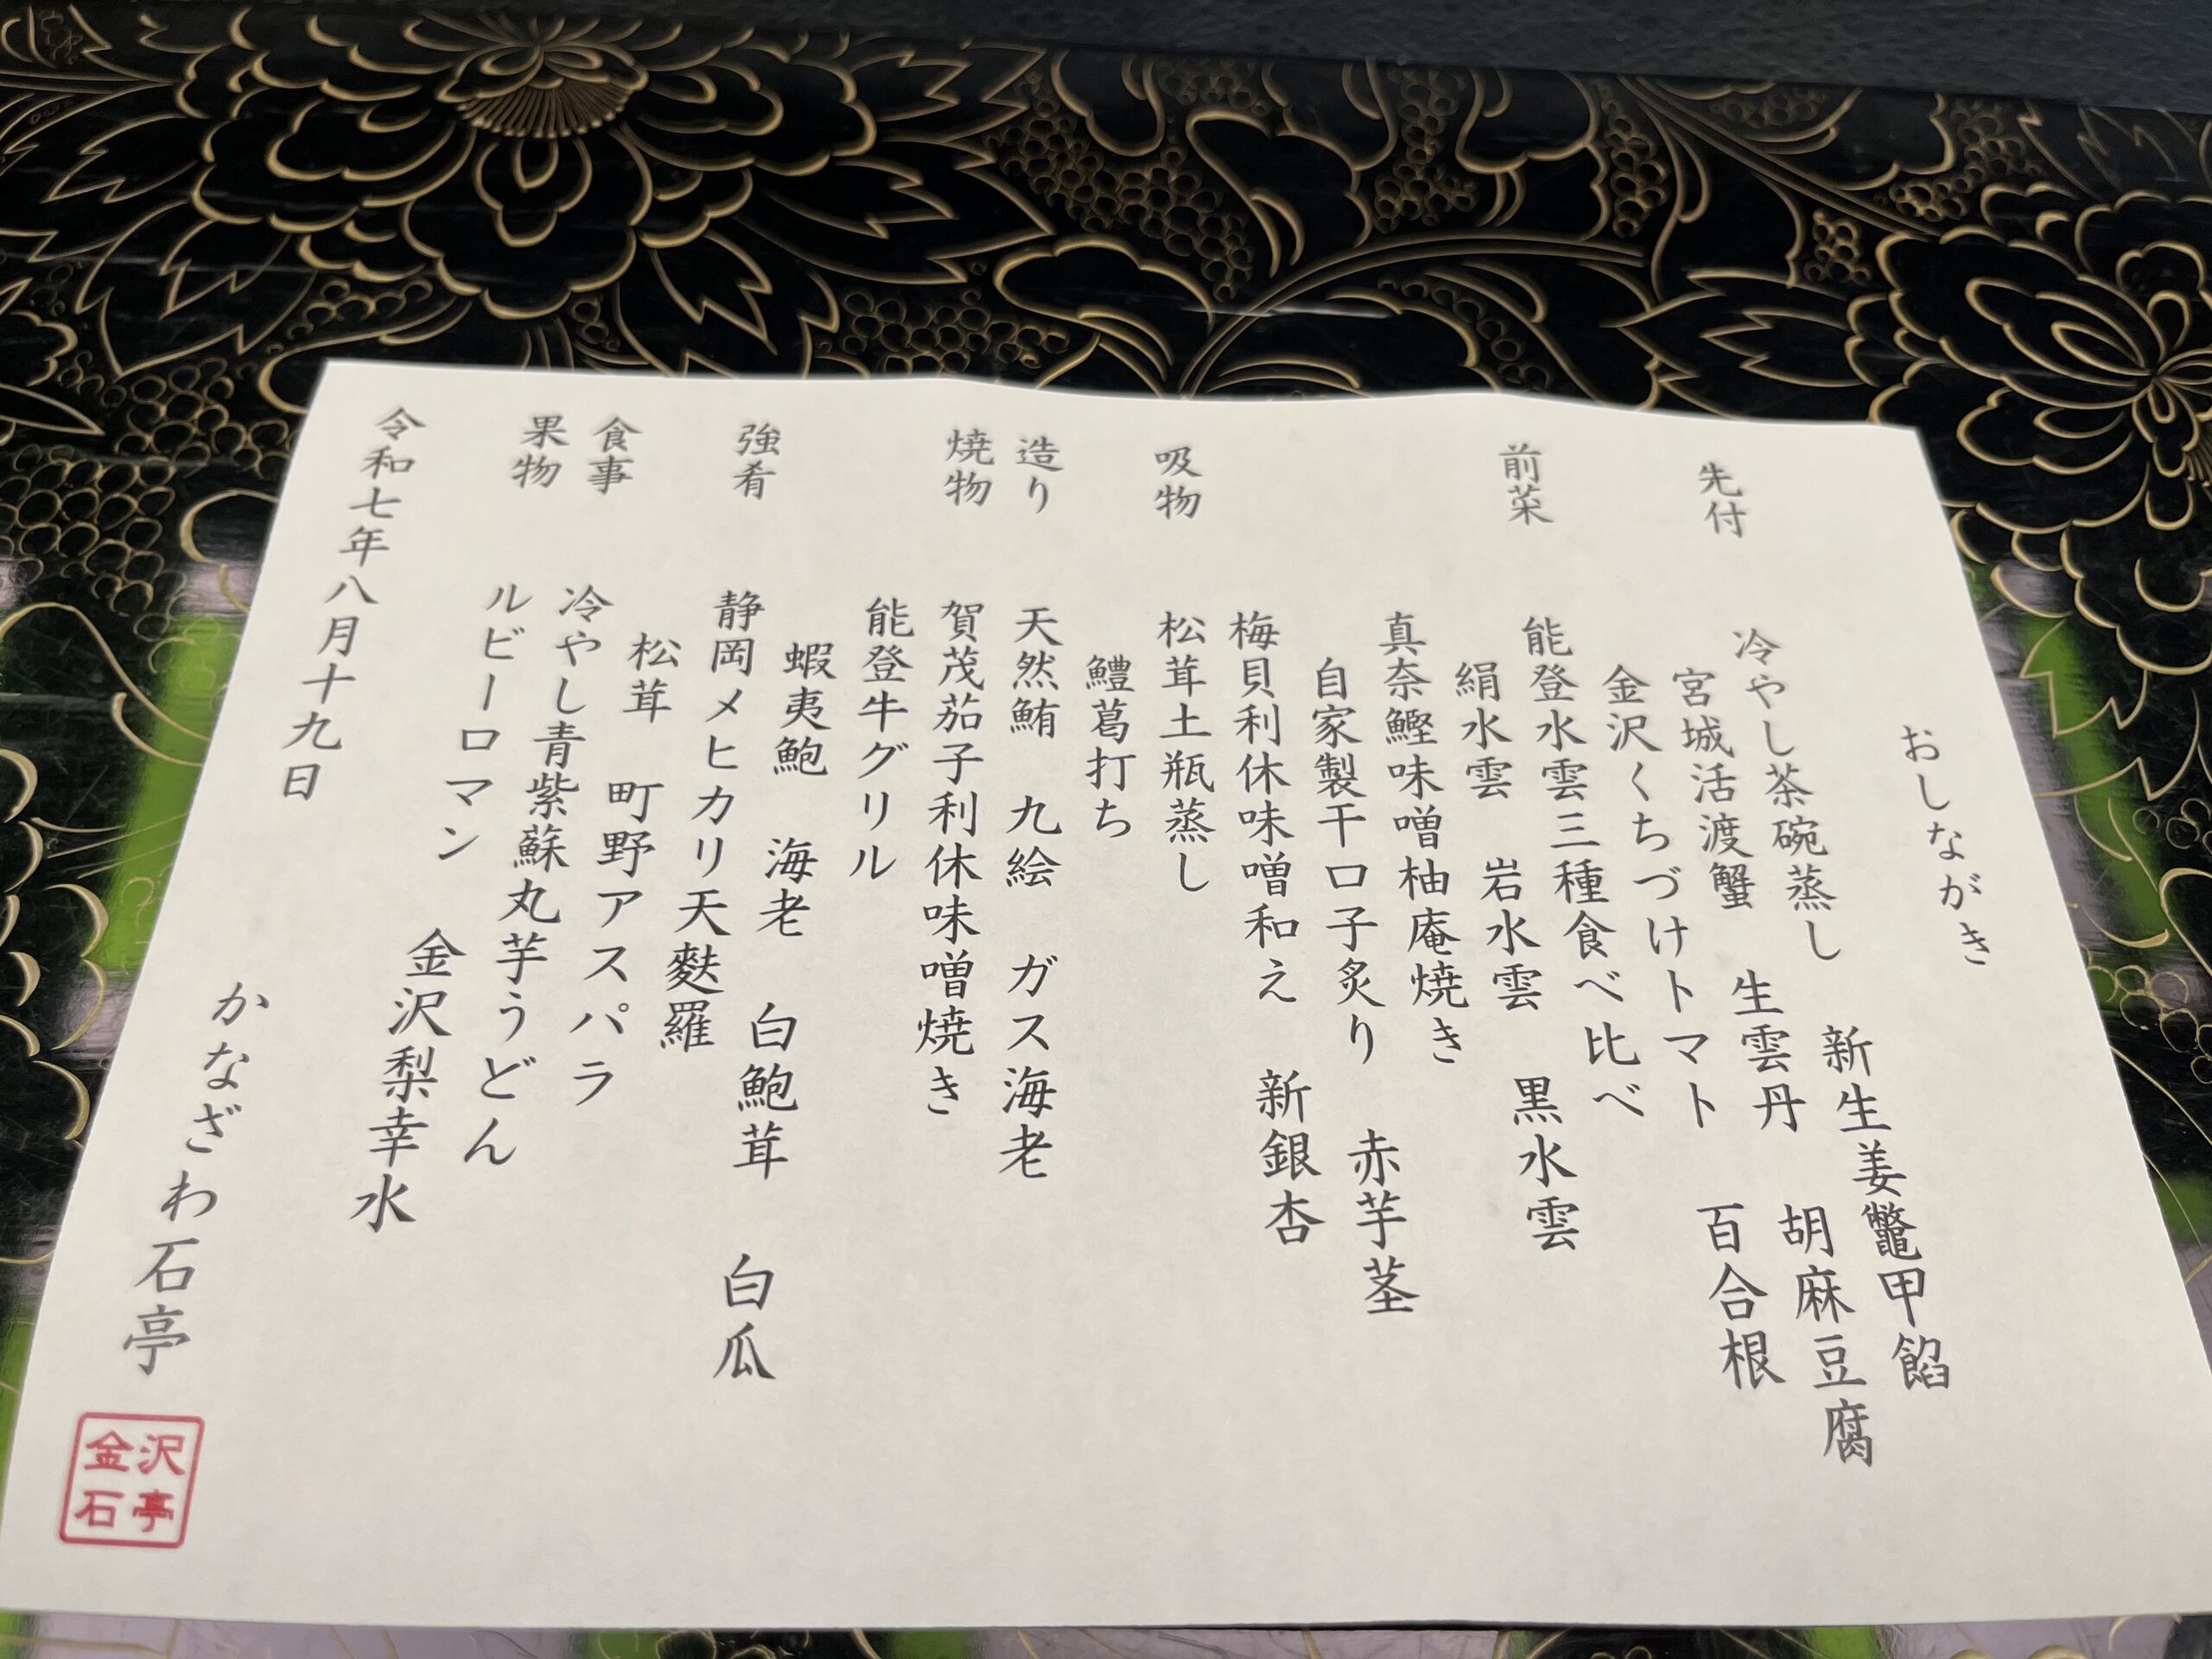 おしながき
先付 冷やし茶碗蒸し 新生姜鼈甲餡
宮城活渡蟹 生雲丹 胡麻豆腐
金沢くちづけトマト 百合根
前菜 能登水雲三種食べ比べ
絹水雲 岩水雲 黒水雲
真奈鰹味噌柚庵焼き
自家製干口子炙り 赤芋茎
梅貝利休味噌和え 新銀杏
吸物 松茸土瓶蒸し
鱧葛打ち
造り 天然鮪 九絵 ガス海老
焼物 賀茂茄子利休味噌焼き
能登牛グリル
蝦夷鮑 海老 白鮑茸 白瓜
強肴 静岡メヒカリ天麩羅
松茸 町野アスパラ
食事 冷やし青紫蘇丸芋うどん
果物 ルビーロマン 金沢梨幸水
令和七年八月十九日
かなざわ石亭
金沢
石亭